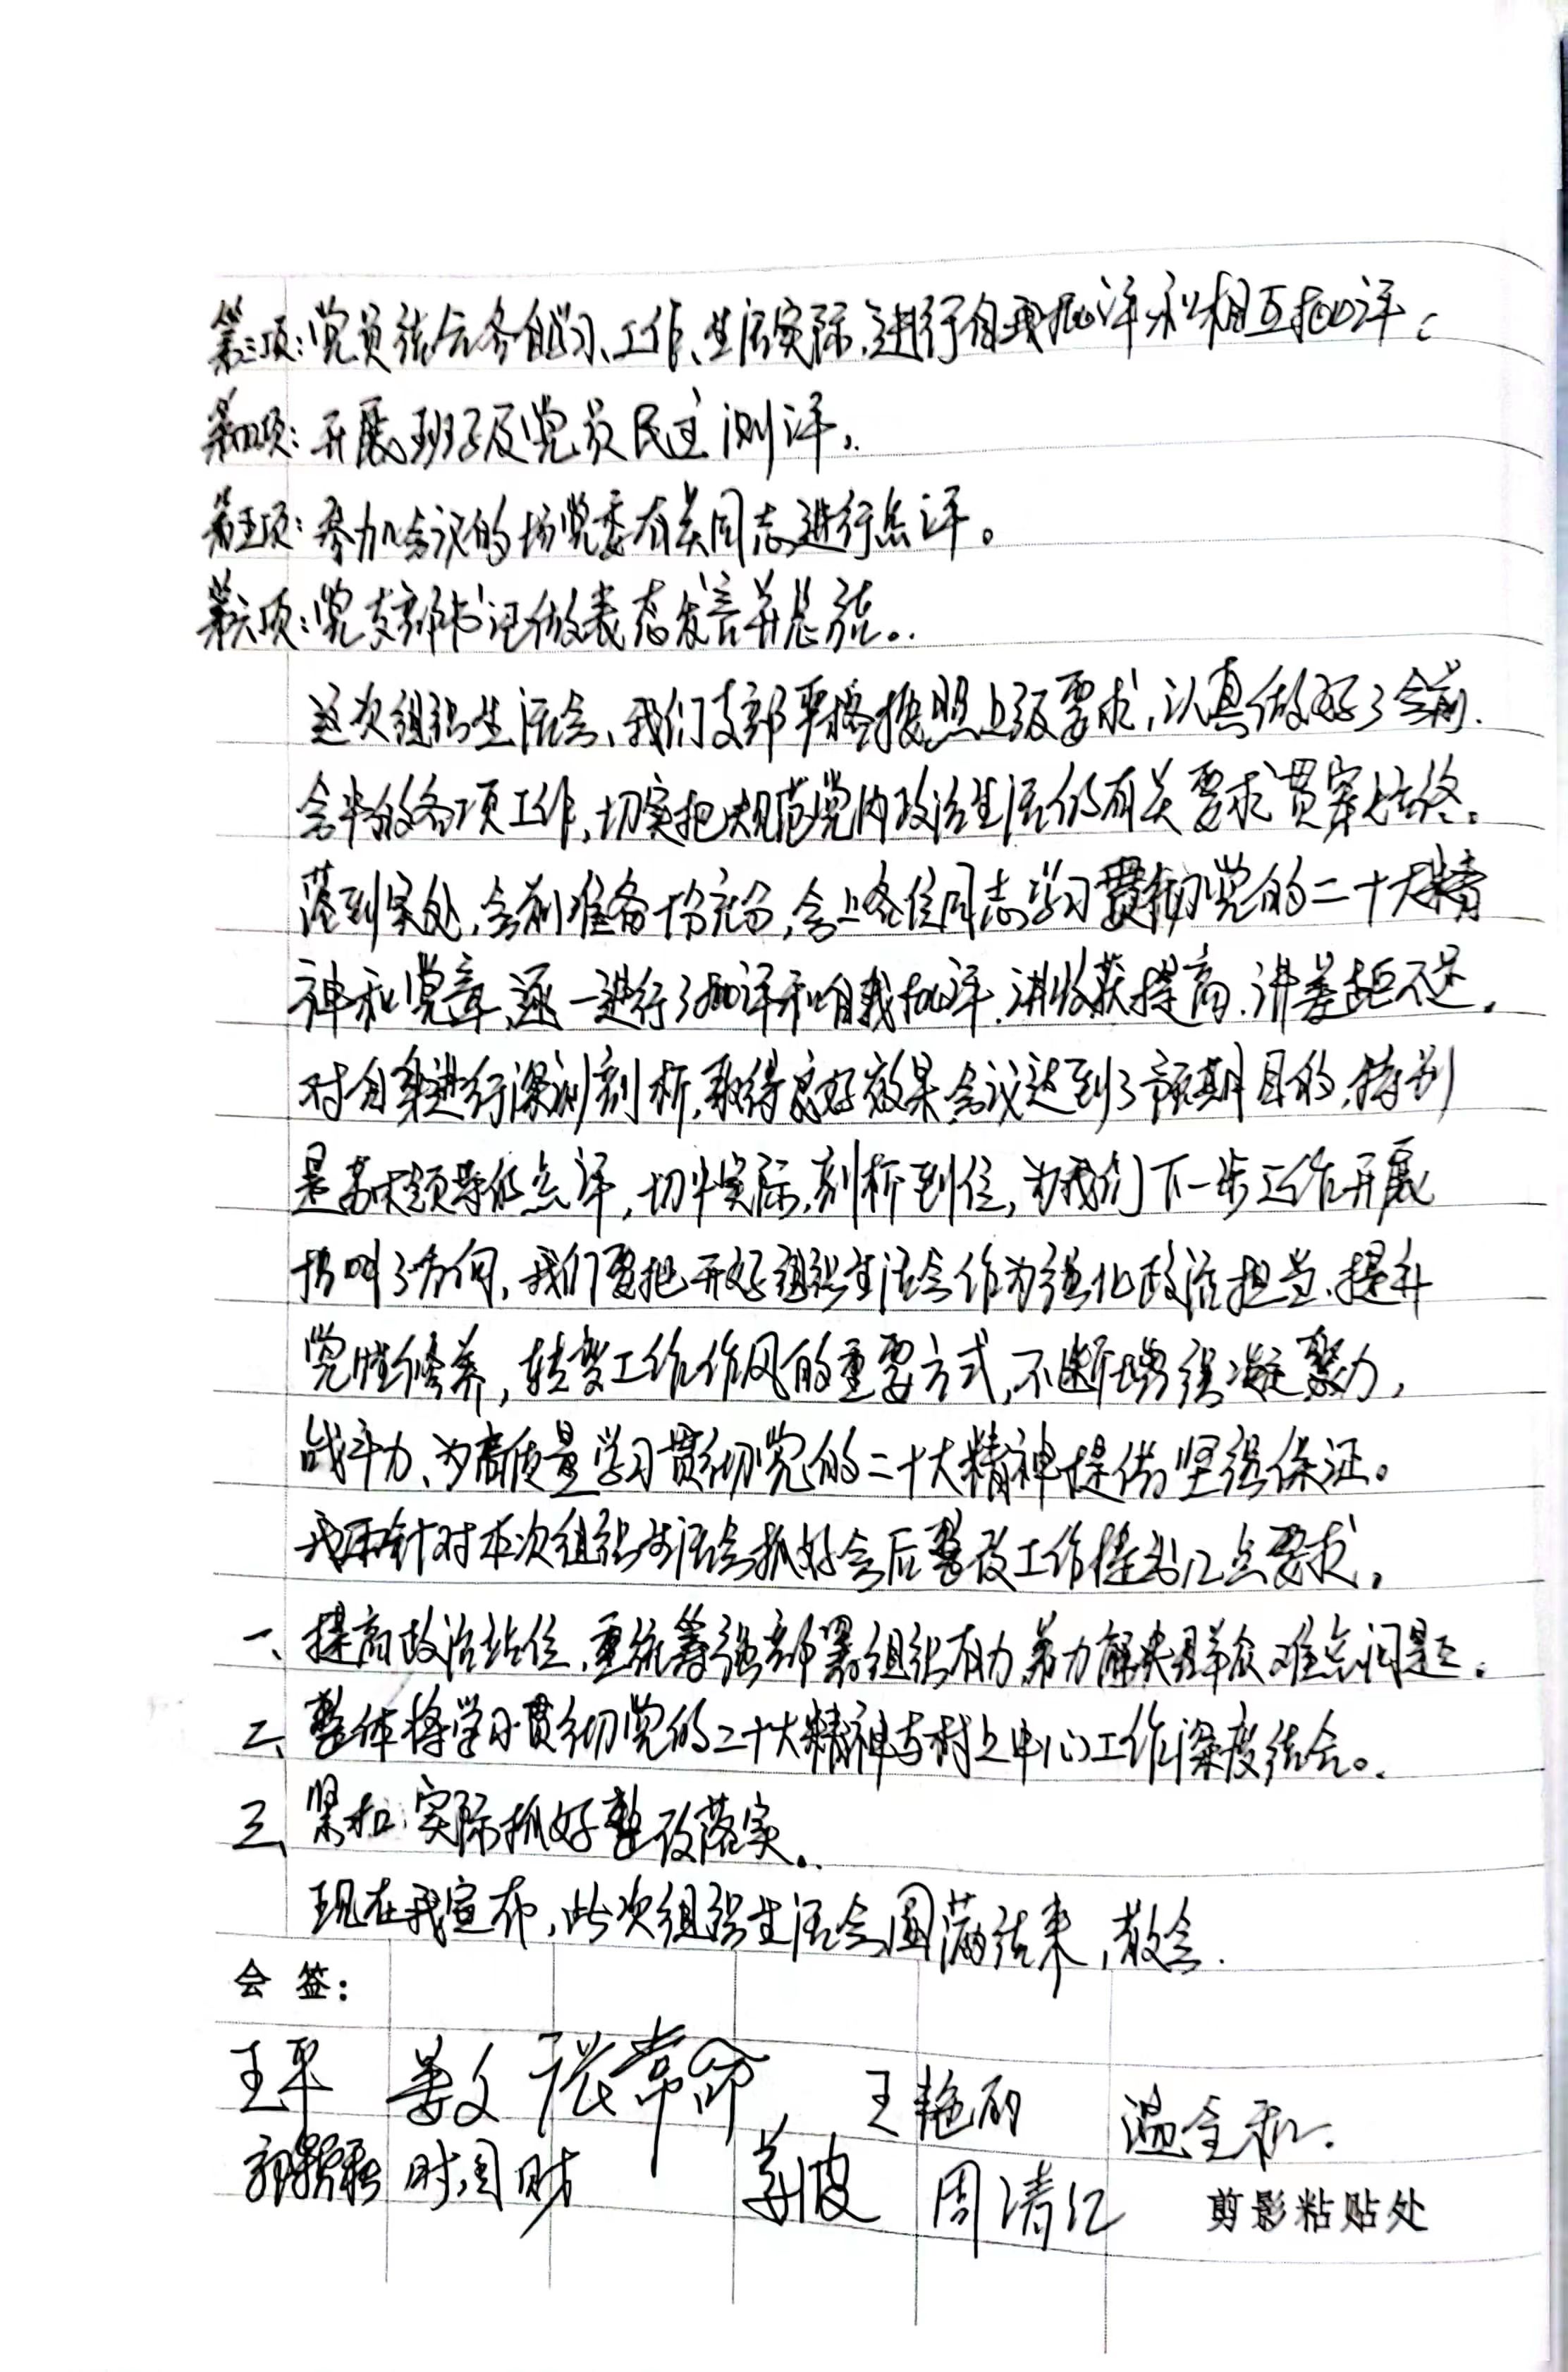 第三项：党员结合各自学习、工作、生活实际，进行自我批评和相互批评。
第四项：开展班子及党员民主测评。
第五项：参加会议的场党委有关同志进行点评。
第六项：党支部书记做表态发言并总结。
这次组织生活会，我们支部严格按照上级要求，认真做好了会前
会中的各项工作，切实把规范党内政治生活的有关要求贯穿始终。
落到实处，会前准备十分充分，会上各位同志学习贯彻党的二十大精
神和党章，逐一进行了批评和自我批评，讲收获提高，讲差距不足。
对自身进行深刻剖析，取得良好效果，会议达到了预期目的，特别
是 领导的点评，切中实际，剖析到位，为我们下一步工作开展
指明了方向，我们要把开好组织生活会作为强化政治担当、提升
党性修养，转变工作作风的重要方式，不断增强凝聚力，
战斗力、为高质量学习贯彻党的二十大精神提供坚强保证。
我再针对本次组织生活会抓好会后整改工作提出几点要求。
一、提高政治站位，重统筹强部署组织有力，着力解决群众难点问题。
二、整体将学习贯彻党的二十大精神与村上中心工作深度结合。
三、紧扣实际抓好整改落实。
现在我宣布，此次组织生活会圆满结束，散会.
会 签：
王平 姜文 张常命 王艳丽 温全礼
时国财 周清江 剪影粘贴处